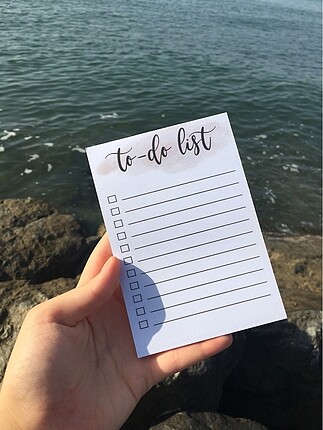 to-do list